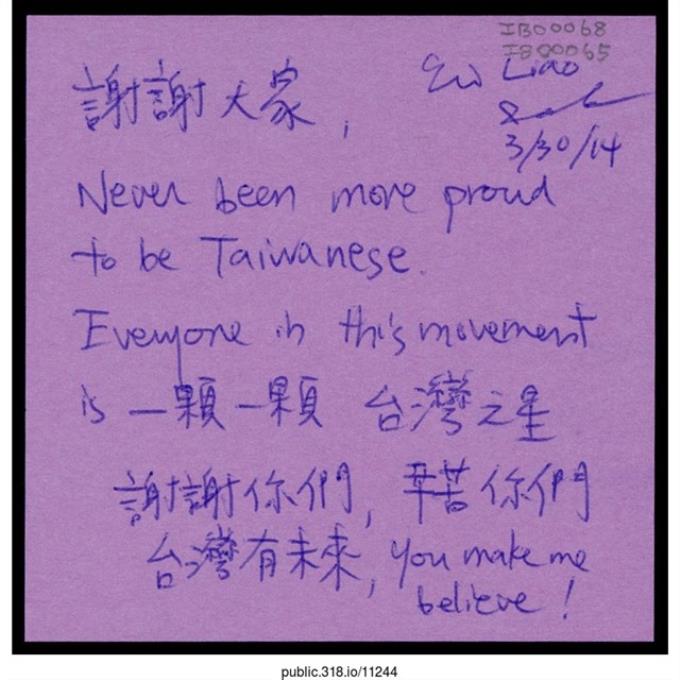 IB00068
IB80065
Liao
謝謝大家,
3/30/14
Never been more proud
to be Taiwanese.
Everyone in this movement
is 一顆一顆 台灣之星
謝謝你們, 辛苦你們
台灣有未來, you make me
believe!
public.318.io/11244